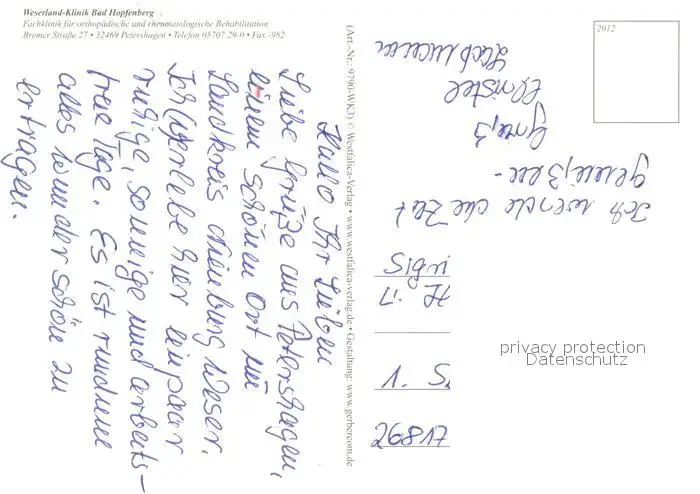 Weserland-Klinik Bad Hopfenberg
Fachklinik für orthopädische und rheumatologische Rehabilitation
Bremer Straße 27 • 32469 Petershagen • Telefon 05707/29-0 • Fax -982
Hallo Ihr Lieben
Liebe Grüße aus Petershagen,
einem schönen Ort im
Landkreis Nienburg Weser.
Ich erlebe hier ein paar
ruhige, sonnige und arbeits-
freie Tage. Es ist rundum
alles wunderschön zu
ertragen.
(Art.-Nr.: 9790-WK3) © Westfalica-Verlag • www.westfalica-verlag.de • Gestaltung: www.gerbercom.de
Ich werde die Zeit
genießen -
Gruß
2012
26817
privacy protection
Datenschutz